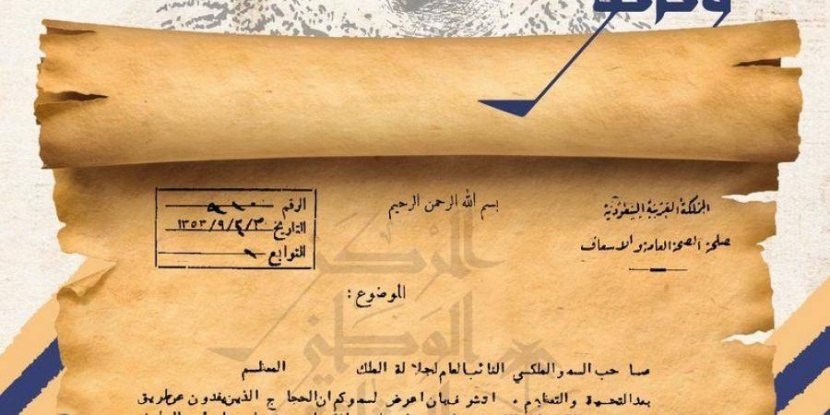 وثيقة
المملكة العربية السعودية
مصلحة الصحة العامة والاسعاف
بسم الله الرحمن الرحيم
الرقم
التاريخ ١٣٥٣/٩/٢/٣
التوابع
الموضوع :
صاحب السمو الملكي النائب العام لجلالة الملك المعظم
بعد التحية والتعظيم . اتشرف بان اعرض لسموكم ان الحجاج الذين يفدون عن طريق
المركز
الوطني